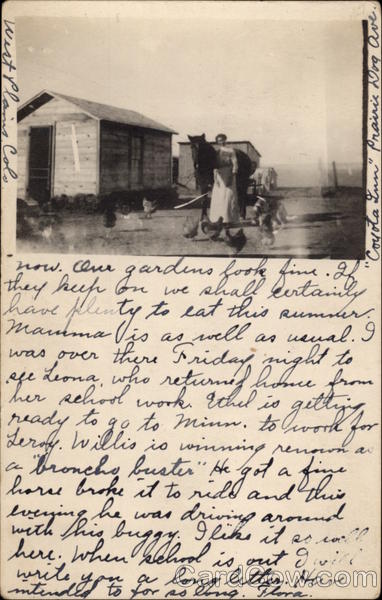 West Plains Colo.
"Coyota Inn" Prairie Dog Ave.
now. Our gardens look fine. If
they keep on we shall certainly
have plenty to eat this summer.
Mamma is as well as usual. I
was over there Friday night to
see Leona, who returned home from
her school work. Ethel is getting
ready to go to Minn. to work for
Leroy. Willis is winning renown as
a "broncho buster" He got a fine
horse broke it to ride and this
evening he was driving around
with his buggy. I like it so well
here. When school is out I will
write you a long letter.
intended to for so long. Flora.
CardCow.com